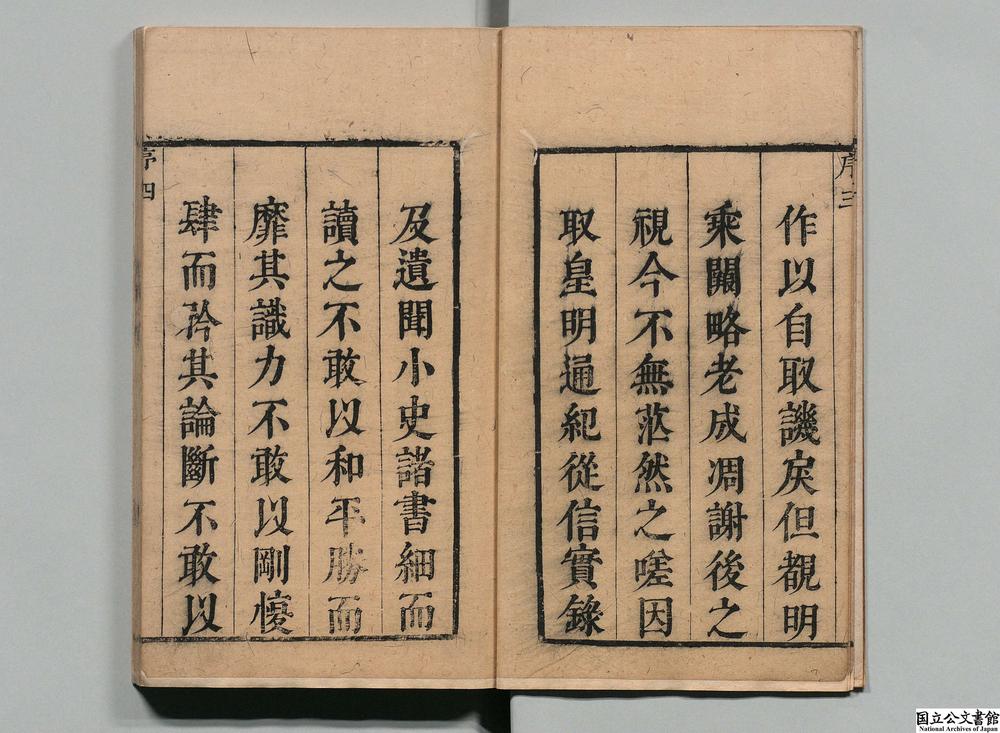 序三
作以自取譏戾但覩明
乘闕略老成凋謝後之
視今不無茫然之嗟因
取皇明通紀從信實錄
及遺聞小史諸書細而
讀之不敢以和平勝而
靡其識力不敢以剛愎
肆而矜其論斷不敢以
序四
国立公文書館
National Archives of Japan